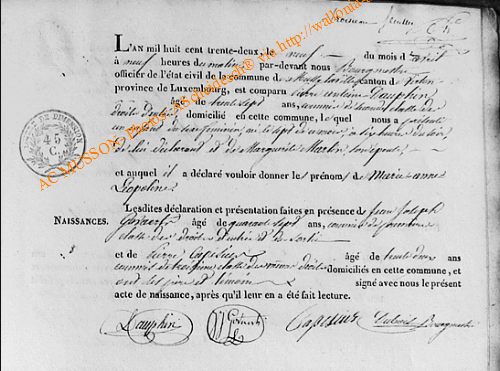 L'AN mil huit cent trente-deux, le neuf du mois d'avril
à neuf heures du matin par-devant nous Bourgmestre
officier de l'état civil de la commune de canton de
province de Luxembourg, est comparu Pierre antoine Dauphin
âgé de trente sept ans, commis de seconde classe des
droits d'entrée domicilié en cette commune, le quel nous a présenté
un enfant du sexe féminin, né le sept du courant, à dix heures du soir
de lui déclarant et de Marguerite Martin, son épouse,
et auquel il a déclaré vouloir donner les prénoms de Marie anne
Léopoldine
Lesdites déclaration et présentation faites en présence de Jean Joseph
NAISSANCES. âgé de quarante sept ans, commis de première
classe des droits d'entrée et de sortie
et de pierre Capésius âgé de trente deux ans
commis de troisième classe des mêmes droits domiciliés en cette commune, et
ont les père et témoins signé avec nous le présent
acte de naissance, après qu'il leur en a été fait lecture.
Dauphin Capésius Bourgmestre
45
C.
AC MUSSON Photos ASchleider@ via http://wallonia